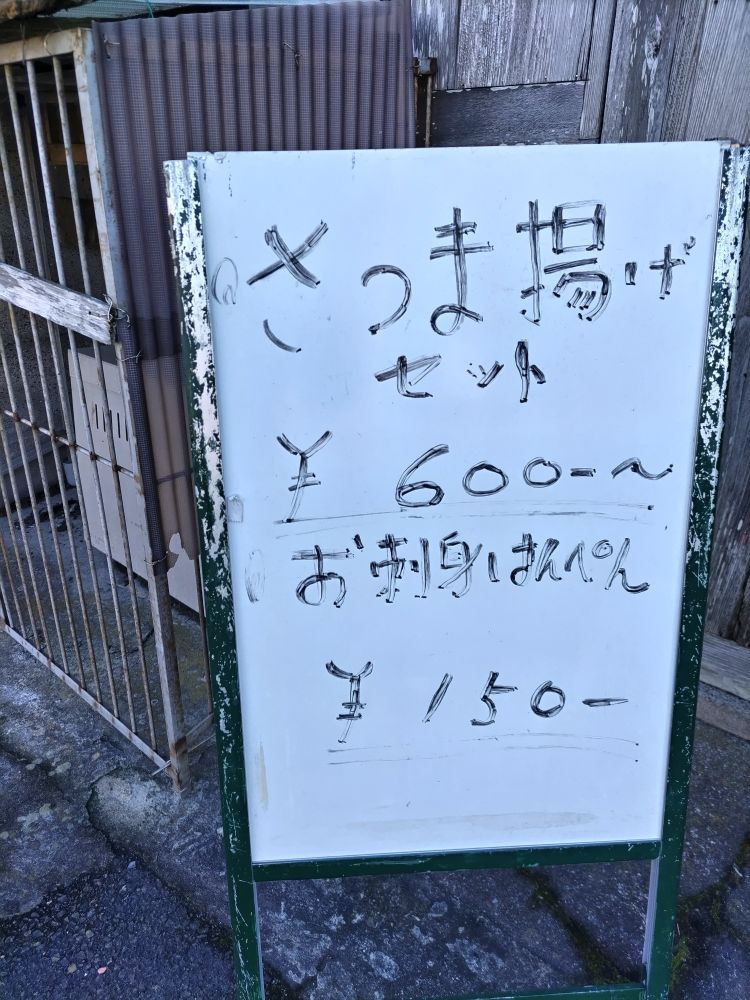 さつま揚げ
セット
¥ 600-～
お刺身はんぺん
¥ 150-